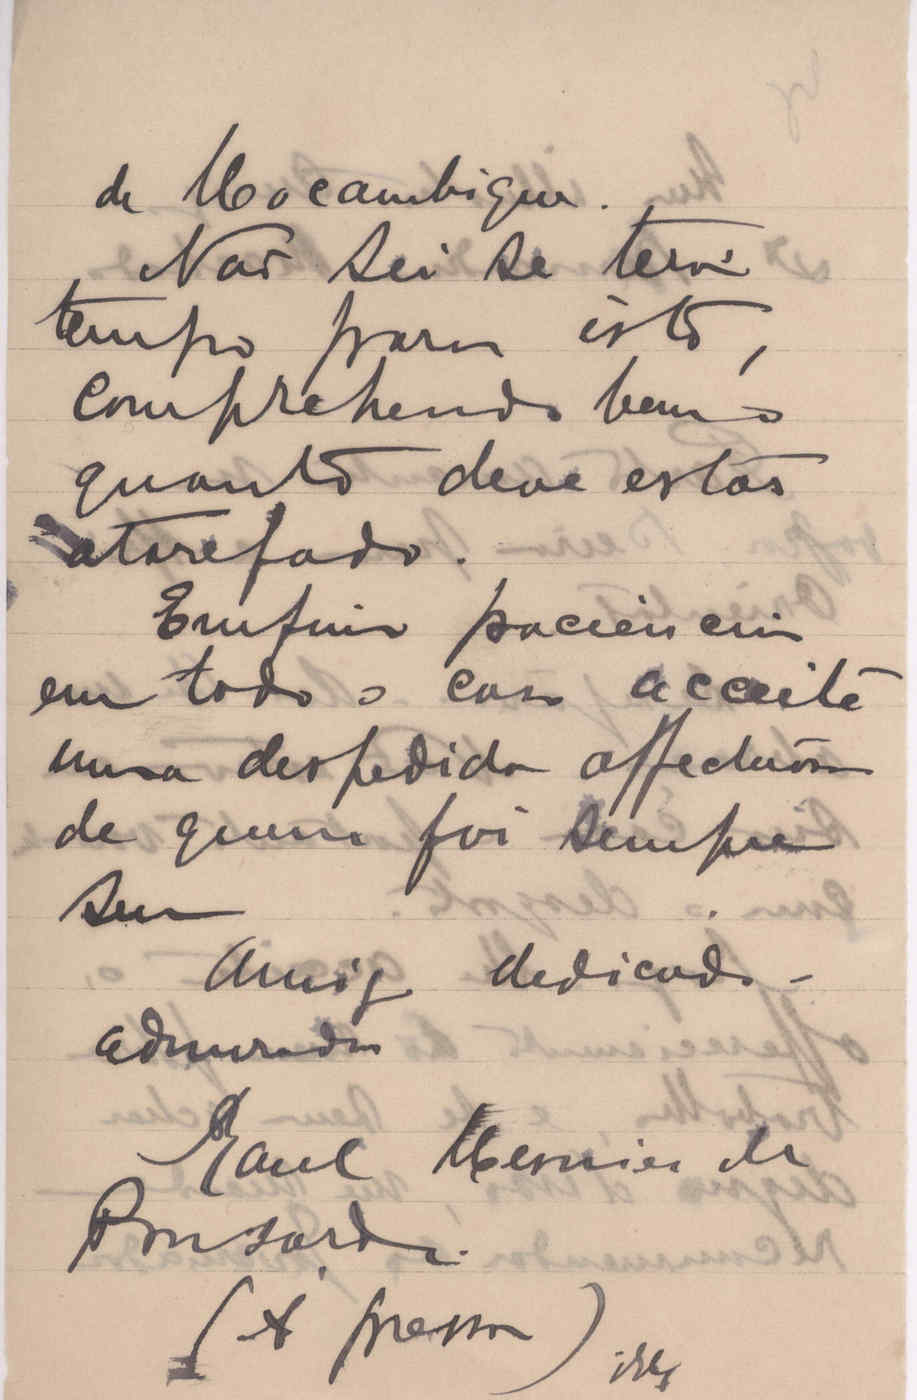 de Mocambique.
Não sei se terá
tempo para isto,
comprehendo bem o
quanto deve estar
atarefado.
Emfim paciencia
em todo o caso acceite
uma despedida affectuosa
de quem foi sempre
seu
Amigo dedicado
admirador
Raul Mesnier de
Ponsard.
(A' pressa)